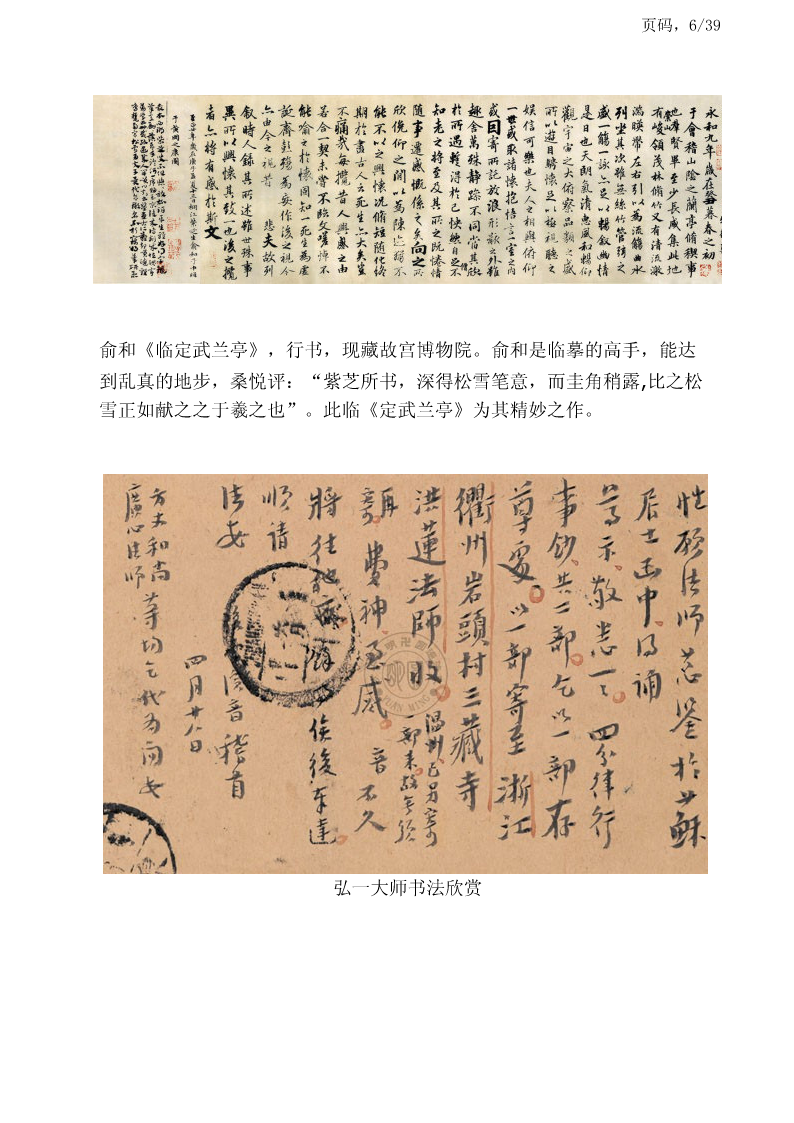 页码，6/39
永和九年歲在癸丑暮春之初
于會稽山陰之蘭亭脩稧事
也羣賢畢至少長咸集此地
有峻領茂林脩竹又有清流激
湍暎帶左右引以為流觴曲水
列坐其次雖無絲竹管弦之
盛一觴一詠亦足以暢叙幽情
是日也天朗氣清惠風和暢仰
觀宇宙之大俯察品類之盛
所以遊目騁懷足以極視聽之
娛信可樂也夫人之相與俯仰
一世或取諸懷抱悟言一室之內
或因寄所託放浪形骸之外雖
趣舍萬殊静躁不同當其欣
於所遇輙得於己快然自足不
知老之將至及其所之既惓情
隨事遷感慨係之矣向之所
欣俛仰之間以為陳迹猶不
能不以之興懷況脩短隨化終
期於盡古人云死生亦大矣豈
不痛哉每攬昔人興感之由
若合一契未甞不臨文嗟悼不
能喻之於懷固知一死生為虛
誕齊彭殤為妄作後之視今
亦由今之視昔 悲夫故列
叙時人錄其所述雖世殊事
異所以興懷其致一也後之攬
者亦將有感於斯文
俞和《临定武兰亭》，行书，现藏故宫博物院。俞和是临摹的高手，能达
到乱真的地步，桑悦评：“紫芝所书，深得松雪笔意，而圭角稍露,比之松
雪正如献之之于羲之也”。此临《定武兰亭》为其精妙之作。
性願法師慈鑒於蘇
居士函中得誦
尊示敬悉一一四分律行
事鈔共二部乞以一部存
尊處以一部寄至浙江
衢州岩頭村三藏寺
洪蓮法師收溫州已另寄
一部來
再
寄費神至感音不久
將往 俟後奉達
順請
法安
音稽首
四月廿八日
方丈和尚
廣心法師
等均乞代為問安
弘一大师书法欣赏